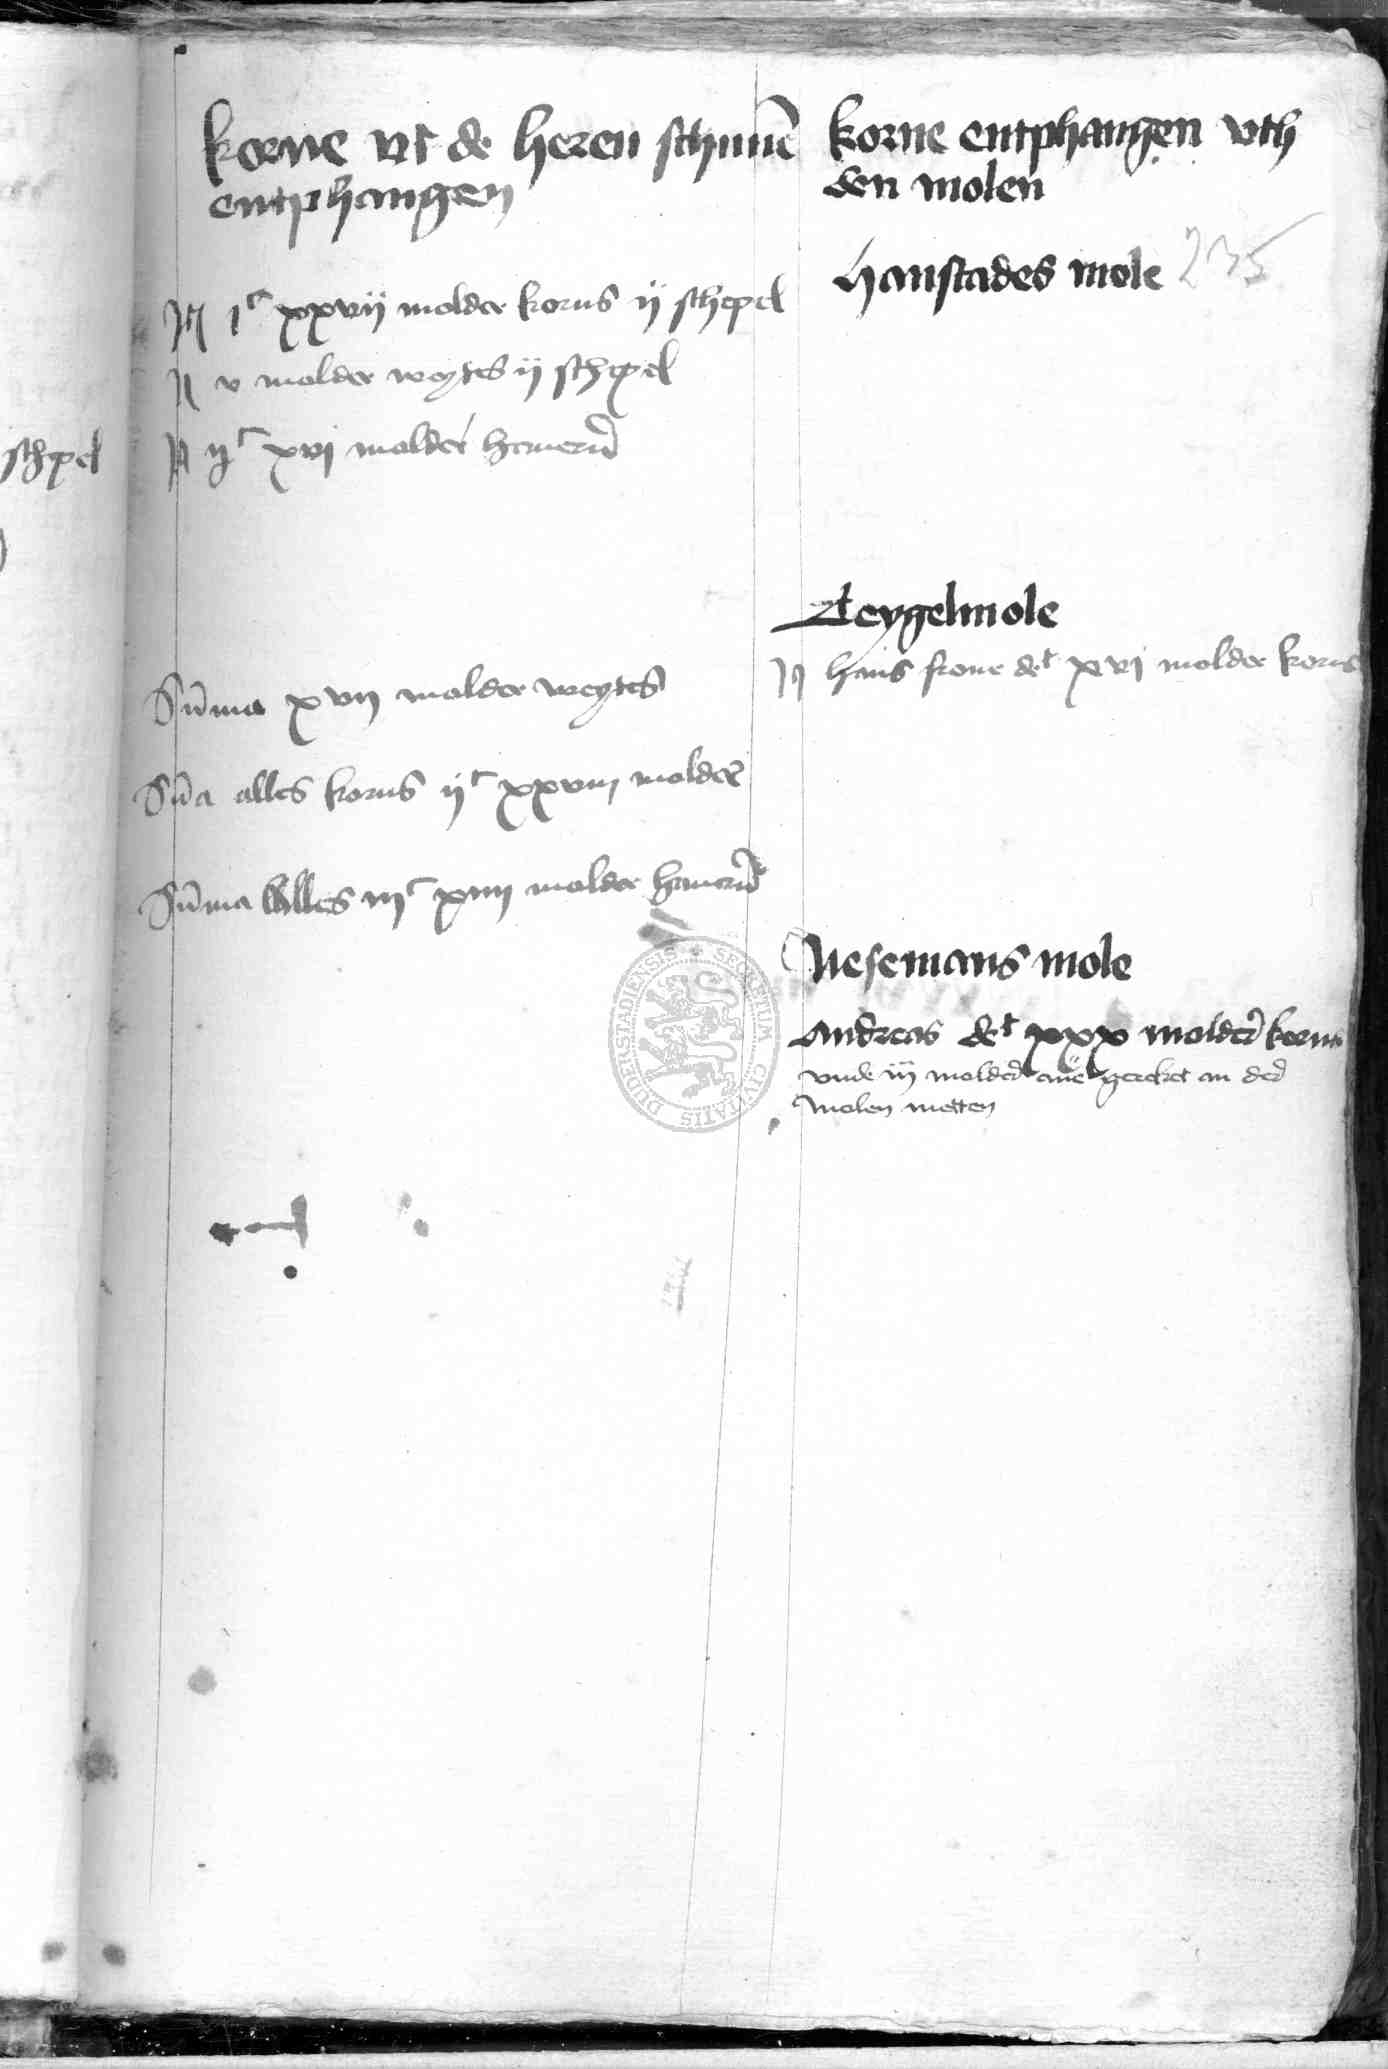 korne vt de heren schunē
entphangen
It jc xxvij molder korns ij schepel
It v molder weytes ij schepel
schepel
It ijc xvj molder hauern
Sūma xvij molder weytes
Sūa alles korns ijc xxviij molder
Sūma alles iijc xiiij molder hauern
korne entphangen vth
den molen
Hanstades mole
235
Teygelmole
It hans frone dt xvj molder korns
Nesemans mole
Andreas dt xxx molder korns
vnde iij molder gereket an der
molen metten
SECRETUM CIVITATIS DUDERSTADIENSIS